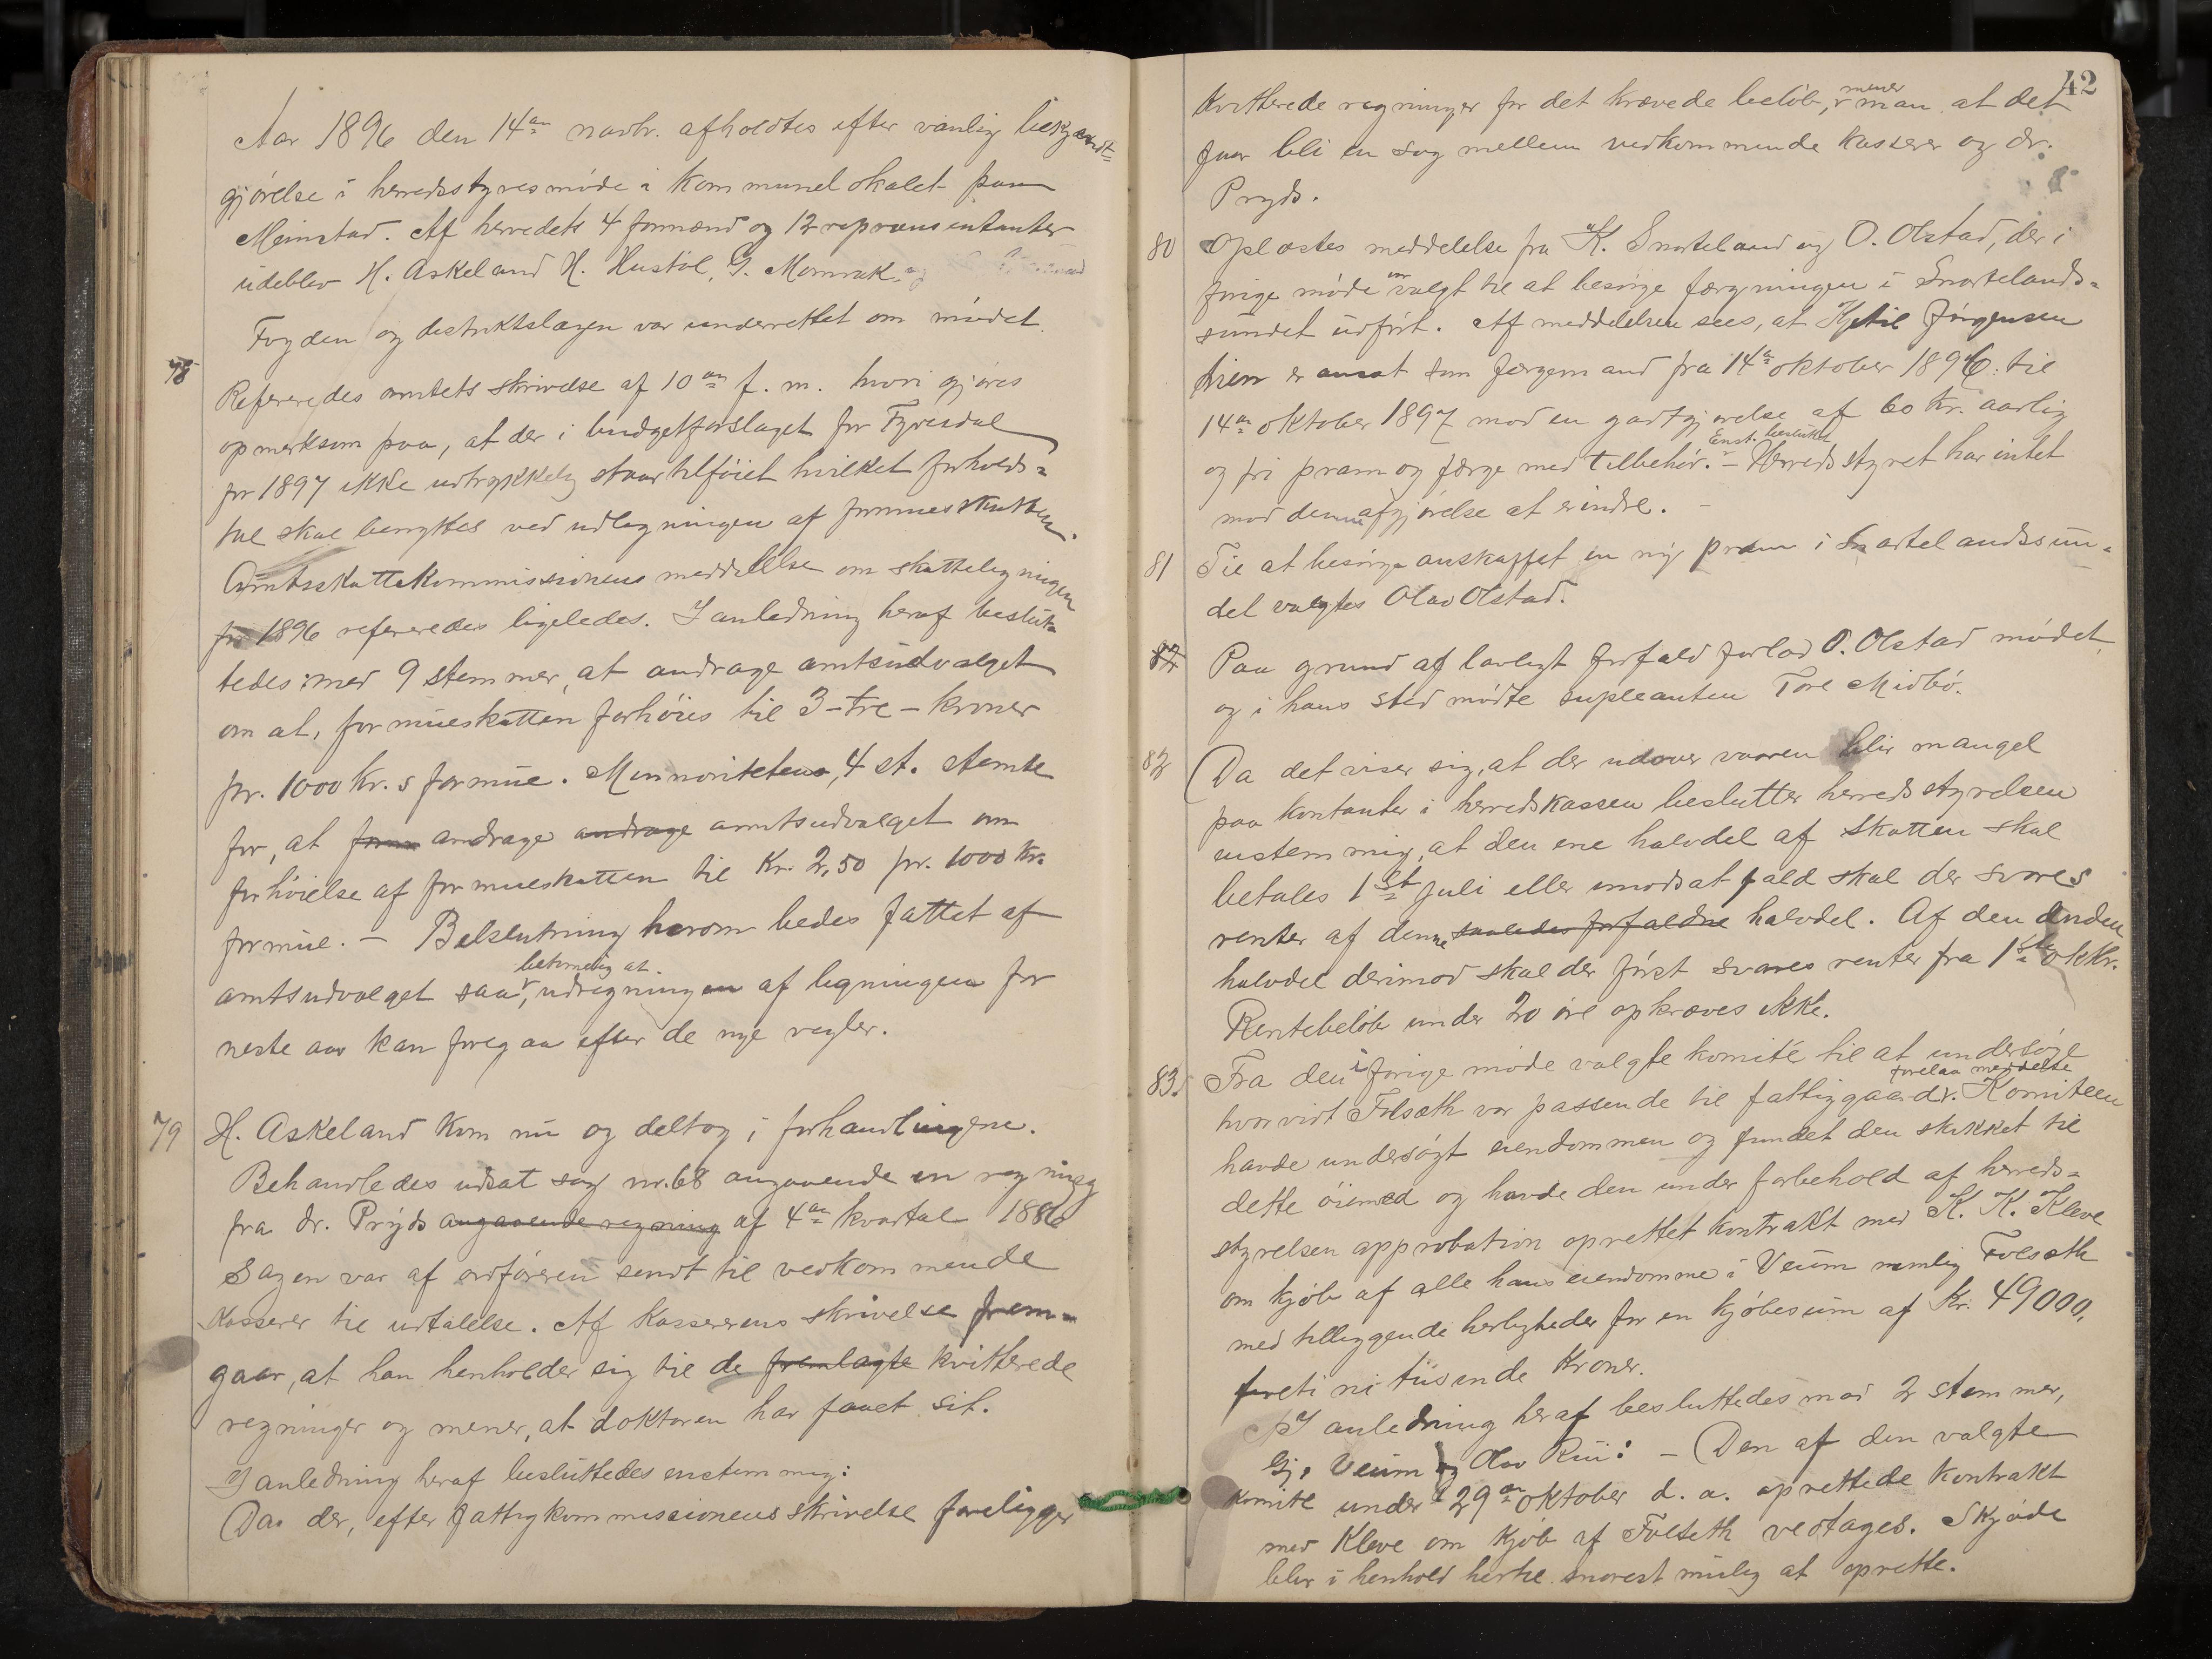 Aar 1896 den 14de novbr. afholdtes efter vanlig bekjendt-
gjörelse i herredsstyresmöde i kommunelokalet paa
Meinstad. Af herredets 4 formænd og 12 repræsentanter
udeblev H. Askeland H. Hustöl, G. Momrak og
Fogden og destriktslægen var underrettet om mödet.
78
Refereredes amtets skrivelse af 10de f. m. hvori gjöres
opmerksom paa, at der i budgetforslaget for Fyresdal
for 1897 ikke udtrykkelig staar tilföiet hvilket forholds-
tal skal benyttes ved udligningen af formuesskatten.
Amtsskattekommissionens meddelelse om skatteligningen
for 1896 refereredes ligeledes. I anledning heraf beslut-
tedes med 9 stemmer, at andrage amtsudvalget
om at, formueskatten forhöies til 3-tre-kroner
pr. 1000 kr.s formue. Minnoriteten, 4 st. stemte
for, at form andrage andrage amtsudvalget om
forhöielse af formueskatten til Kr. 2,50 pr. 1000 kr.
formue. - Belslutning herom bedes fattet af
betimelig at
amtsudvalget saa, udregningen af ligningen for
neste aar kan foregaa efter de nye regler.
79 H. Askeland kom nu og deltog i forhandlingene.
Behandledes udsat sag nr. 68 angaaende en regning
fra dr. Pryds angaaende regning af 4de kvartal 1886
Sagen var af ordföreren sendt til vedkommende
kasserer til udtalelse. Af kassererens skrivelse frem-
gaar, at han henholder sig til de fremlagte kvitterede
regninger og mener, at doktoren har faaet sit.
I anledning heraf besluttedes enstemmig:
Da der, efter fattigkommissionens skrivelse foreligger
42
mener
kvitterede regninger for det krævede belöb, man at det
faar bli en sag mellem vedkommende kasserer og dr.
Pryds.
80 Oplæstes meddelelse fra K. Snarteland og O. Olstad, der i
var
forige möde valgt til at besörge færgningen i Snartelands-
sundet udfört. Af meddelelsen sees, at Kjetil Jörgensen
er ansat som færgemand fra 14de oktober 1896 til
14de oktober 1897 mod en godtgjörelse af 60 kr. aarlig
Enst. besluttet
og fri pram og færge med tilbehör. - Herredsstyret har intet
mod denne afgjörelse at erindre. -
81 Til at besörge anskaffet en ny pram i Snartelandssun-
det valgtes Olav Olstad.
82 Paa grund af lovligt forfald forlod O. Olstad mödet
og i hans sted mödte supleanten Tore Midbö.
82 Da det viser sig, at der udover vaaren blir mangel
paa kontanter i herredskassen beslutter herredsstyrelsen
enstemmig, at den ene halvdel af skatten skal
betales 1st juli eller imodsat fald skal der svares
renter af denne saaledes forfaldne halvdel. Af den anden
halvdel derimod skal der först svares renter fra 1ste oktbr.
Rentebelöb under 20 öre opkræves ikke.
83. Fra den i forige möde valgte komité til at undersöge
forelaa meddelelse
hvorvidt Folsæth var passende til fattiggaard. Komiteen
havde undersögt eiendommen og fundet den skikket til
dette öiemed og havde den under forbehold af herreds-
styrelsen approbation oprettet kontrakt med K. K. Kleve
om kjöb af alle hans eiendomme i Veum nemlig Folsæth
med tilliggende herligheder for en kjöbesum af kr. 49000,
foreti ni tusinde kroner.
I anledning heraf besluttedes mod 2 stemmer,
Gj. Veum og Olav Rui: - Den af den valgte
komite under 29de oktober d. a. oprettede kontrakt
med Kleve om kjöb af Folseth vedtages. Skjöde
blir i henhold hertil snarest mulig at oprette.